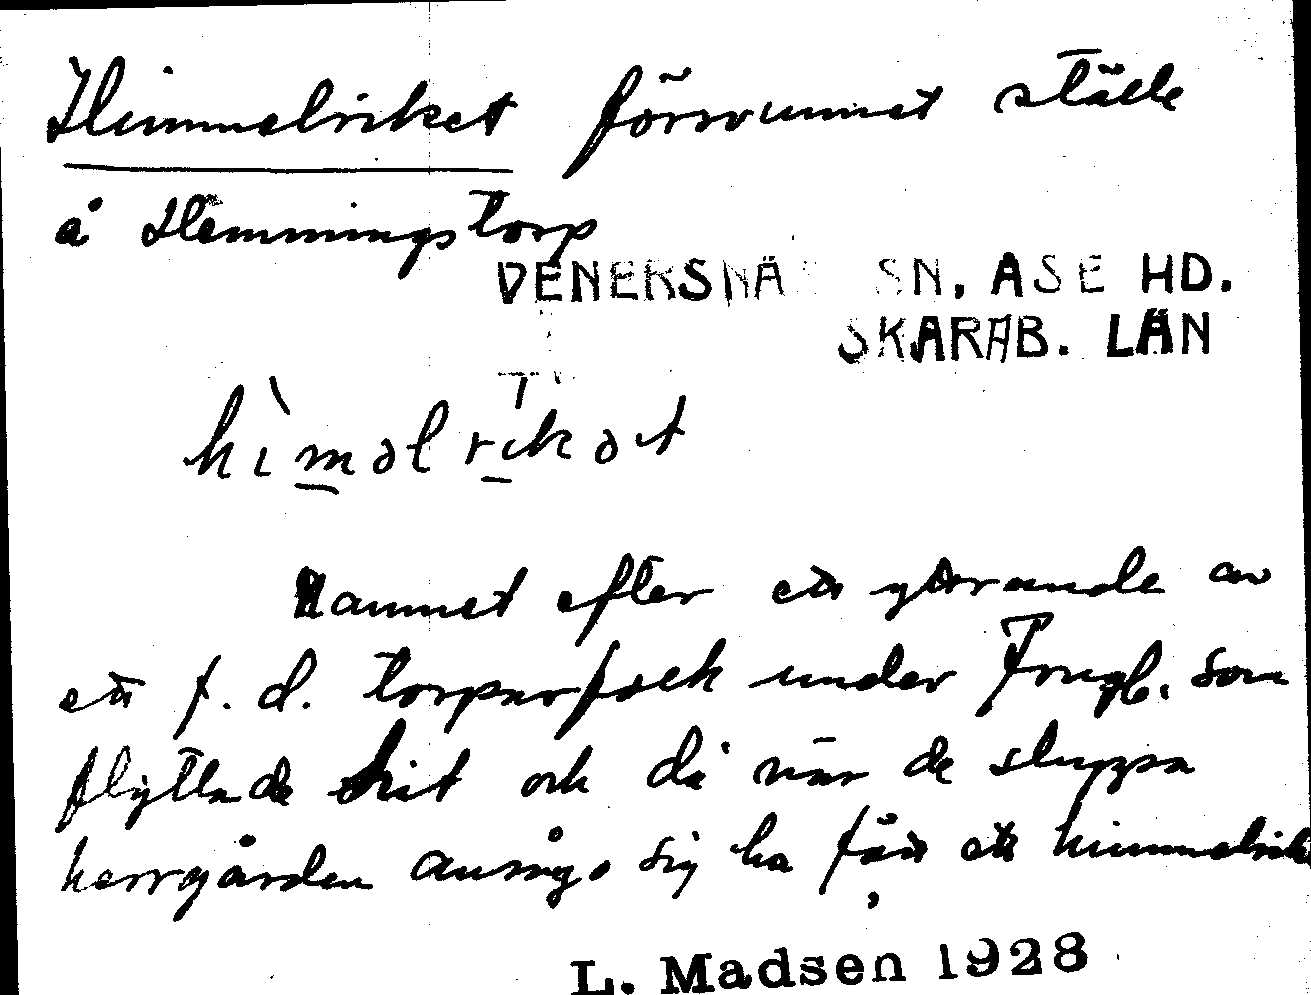 Himmelriket försvunnet ställe
å Hemmingstorp
VENERSNÄS SN, ÅSE HD.
SKARAB. LÄN
hìməlrikət
Namnet efter ett yttrande av
ett f. d. torparfolk under Frugb. som
flyttade hit och då när de sluppo
herrgården ansågo sig ha fått ett himmelrike
L. Madsen 1928